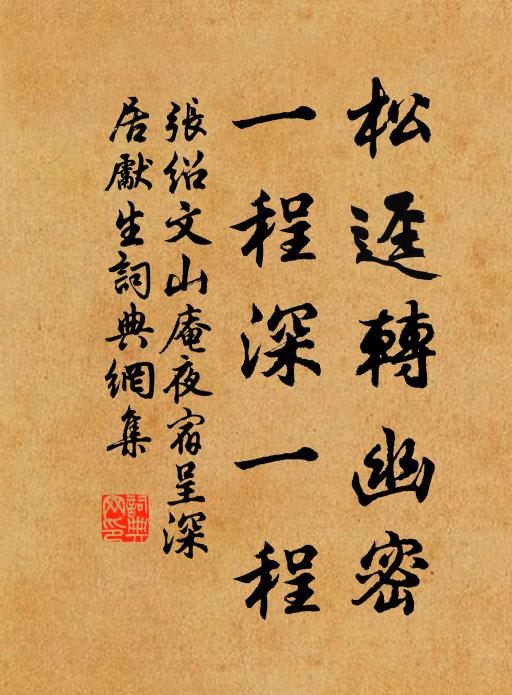 松逕轉幽密
一程深一程
張紹文山庵夜宿呈深
居獻生詞典網集
詞典
网印